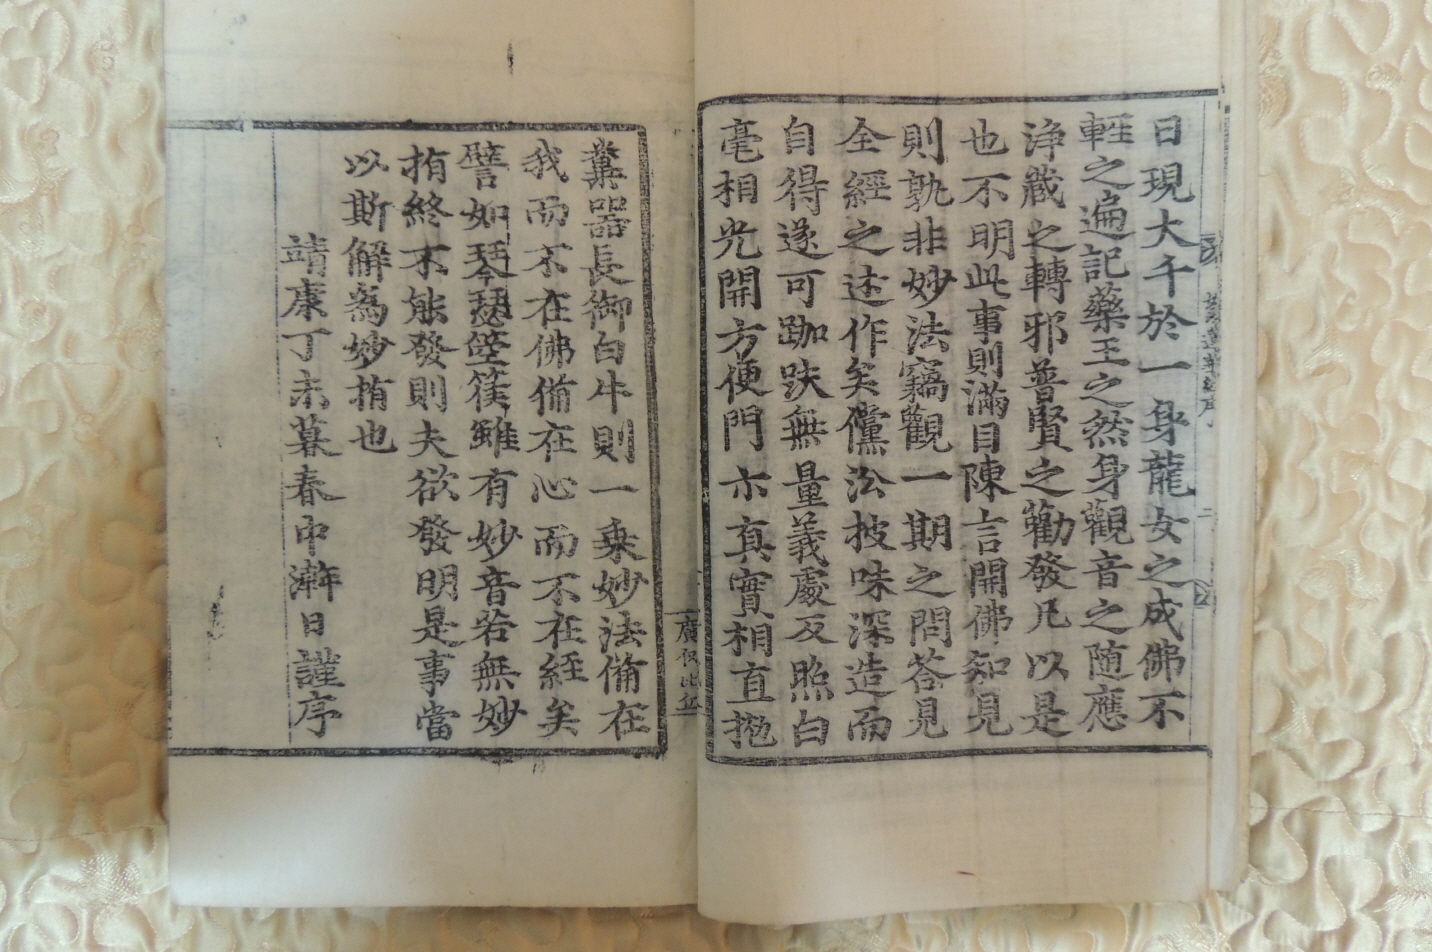 日現大千於一身龍女之成佛不
輕之遍記藥王之然身觀音之随應
浄蔵之轉邪普賢之勸發凡以是
也不明此事則滿目陳言開佛知見
則孰非妙法竊觀一期之問答見
全經之述作矣儻㳂披味深造而
自得遂可跏趺無量義處反照白
毫相光開方便門亦真實相直抛
糞器長御白牛則一乗妙法備在
我而不在佛備在心而不在經矣
譬如琴瑟箜篌雖有妙音若無妙
指終不能發則夫欲發明是事當
以斯解為妙指也
靖康丁未暮春中澣日謹序